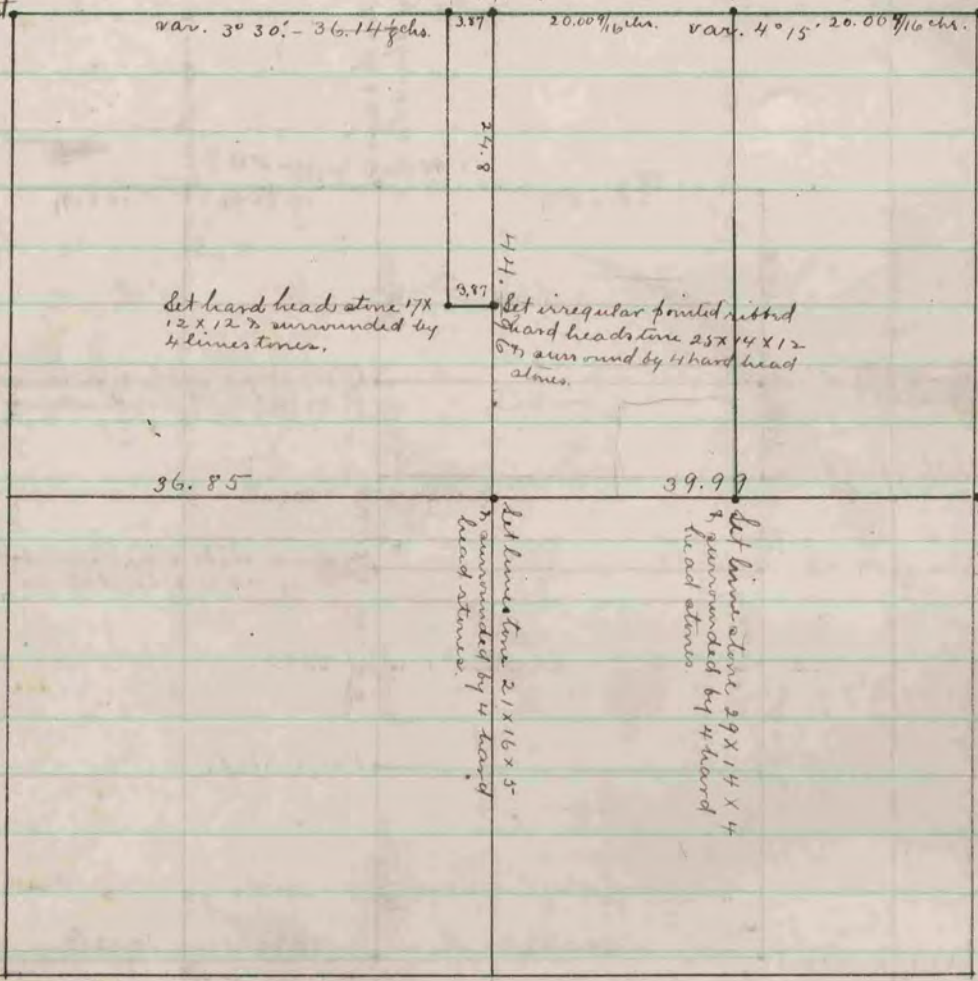 var. 3° 30'. - 36.14 1/8 chs.
3.87
20.00 9/16 chs.
var. 4° 15'. 20.00 9/16 chs.
24.8
3.87
Set hard head stone 17 X
12 X 12 & surrounded by
4 limestones.
Set irregular pointed ribbd
hard headstone 25 X 14 X 12
& surround by 4 hard head
stones.
36.85
39.99
Set limestone 21 X 16 X 5
& surrounded by 4 hard
head stones.
Set limestone 29 X 14 X 4
& surrounded by 4 hard
head stones.